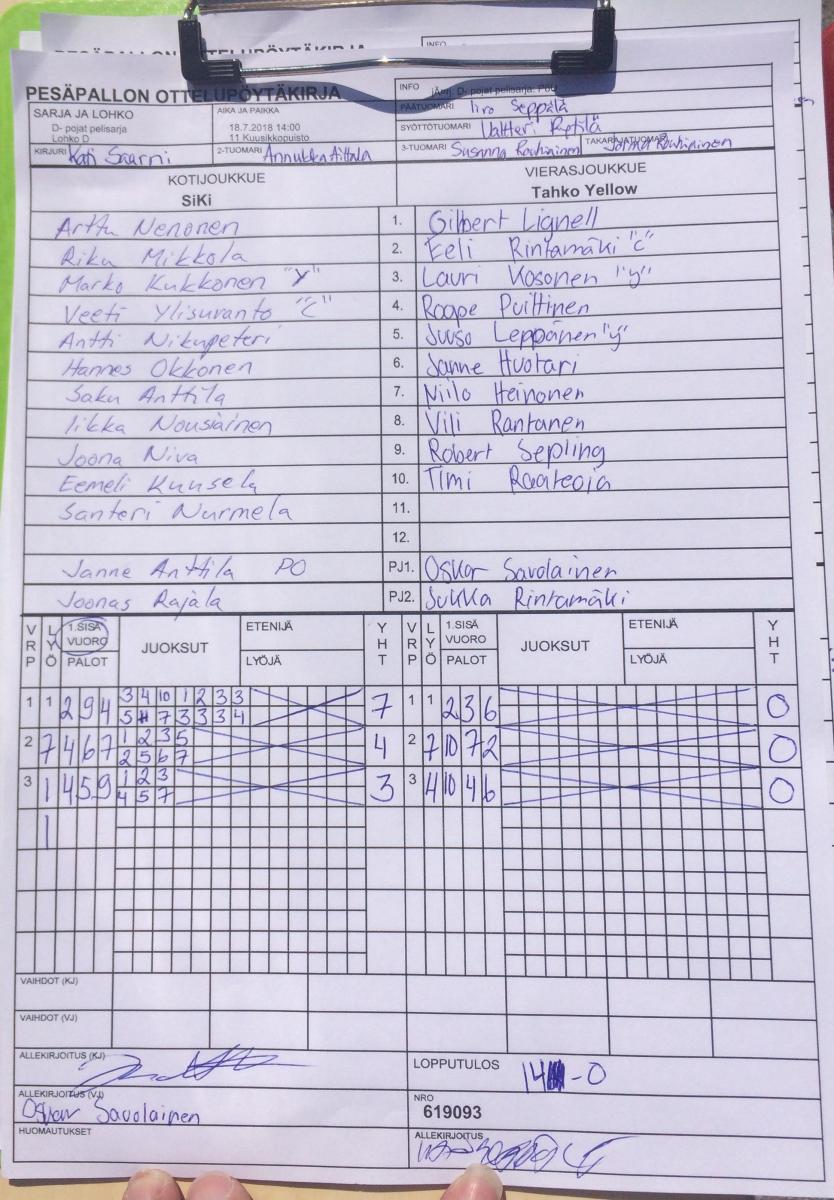 PESÄPALLON OTTELUPÖYTÄKIRJA
INFO
PESÄPALLON OTTELUPÖYTÄKIRJA
INFO jÄrj: D- pojat pelisarja: PöU
PÄÄTUOMARI Iiro Seppälä
SARJA JA LOHKO
D- pojat pelisarja
Lohko D
AIKA JA PAIKKA
18.7.2018 14:00
11 Kuusikkopuisto
SYÖTTÖTUOMARI Valtteri
KIRJURI Kati Saarni
2-TUOMARI Annukka Aittala
3-TUOMARI Susanna Rouhiainen
TAKARAJATUOMARI Jorma Rouhiainen
KOTIJOUKKUE
SiKi
VIERASJOUKKUE
Tahko Yellow
Arttu Nenonen 1. Gilbert Lignell
Riku Mikkola 2. Eeli Rintamäki "C"
Marko Kukkonen "Y" 3. Lauri Kosonen "y"
Veeti Ylisuvanto "C" 4. Roope Puittinen
Antti Nikupeteri 5. Juuso Leppänen "y"
Hannes Okkonen 6. Janne Huotari
Saku Anttila 7. Niilo Heinonen
Iikka Nousiainen 8. Vili Rantanen
Joona Niva 9. Robert Sepling
Eemeli Kuusela 10. Timi Raateoja
Santeri Nurmela 11.
12.
Janne Anttila PO PJ1. Oskar Savolainen
Joonas Rajala PJ2. Jukka Rintamäki
VRP LYÖ 1.SISÄ VUORO PALOT JUOKSUT ETENIJÄ LYÖJÄ YHT VRP LYÖ 1.SISÄ VUORO PALOT JUOKSUT ETENIJÄ LYÖJÄ YHT
1 1 2 9 4 3 4 10 1 2 3 3 7 1 1 2 3 6 0
5 7 3 3 3 4
2 7 4 6 7 1 2 3 5 4 2 7 10 7 2 0
2 5 6 7
3 1 4 5 9 1 2 3 3 3 4 10 4 6 0
4 5 7
1
VAIHDOT (KJ)
VAIHDOT (VJ)
ALLEKIRJOITUS (KJ)
LOPPUTULOS 14-0
ALLEKIRJOITUS (VJ)
Oskar Savolainen
NRO
619093
HUOMAUTUKSET
ALLEKIRJOITUS